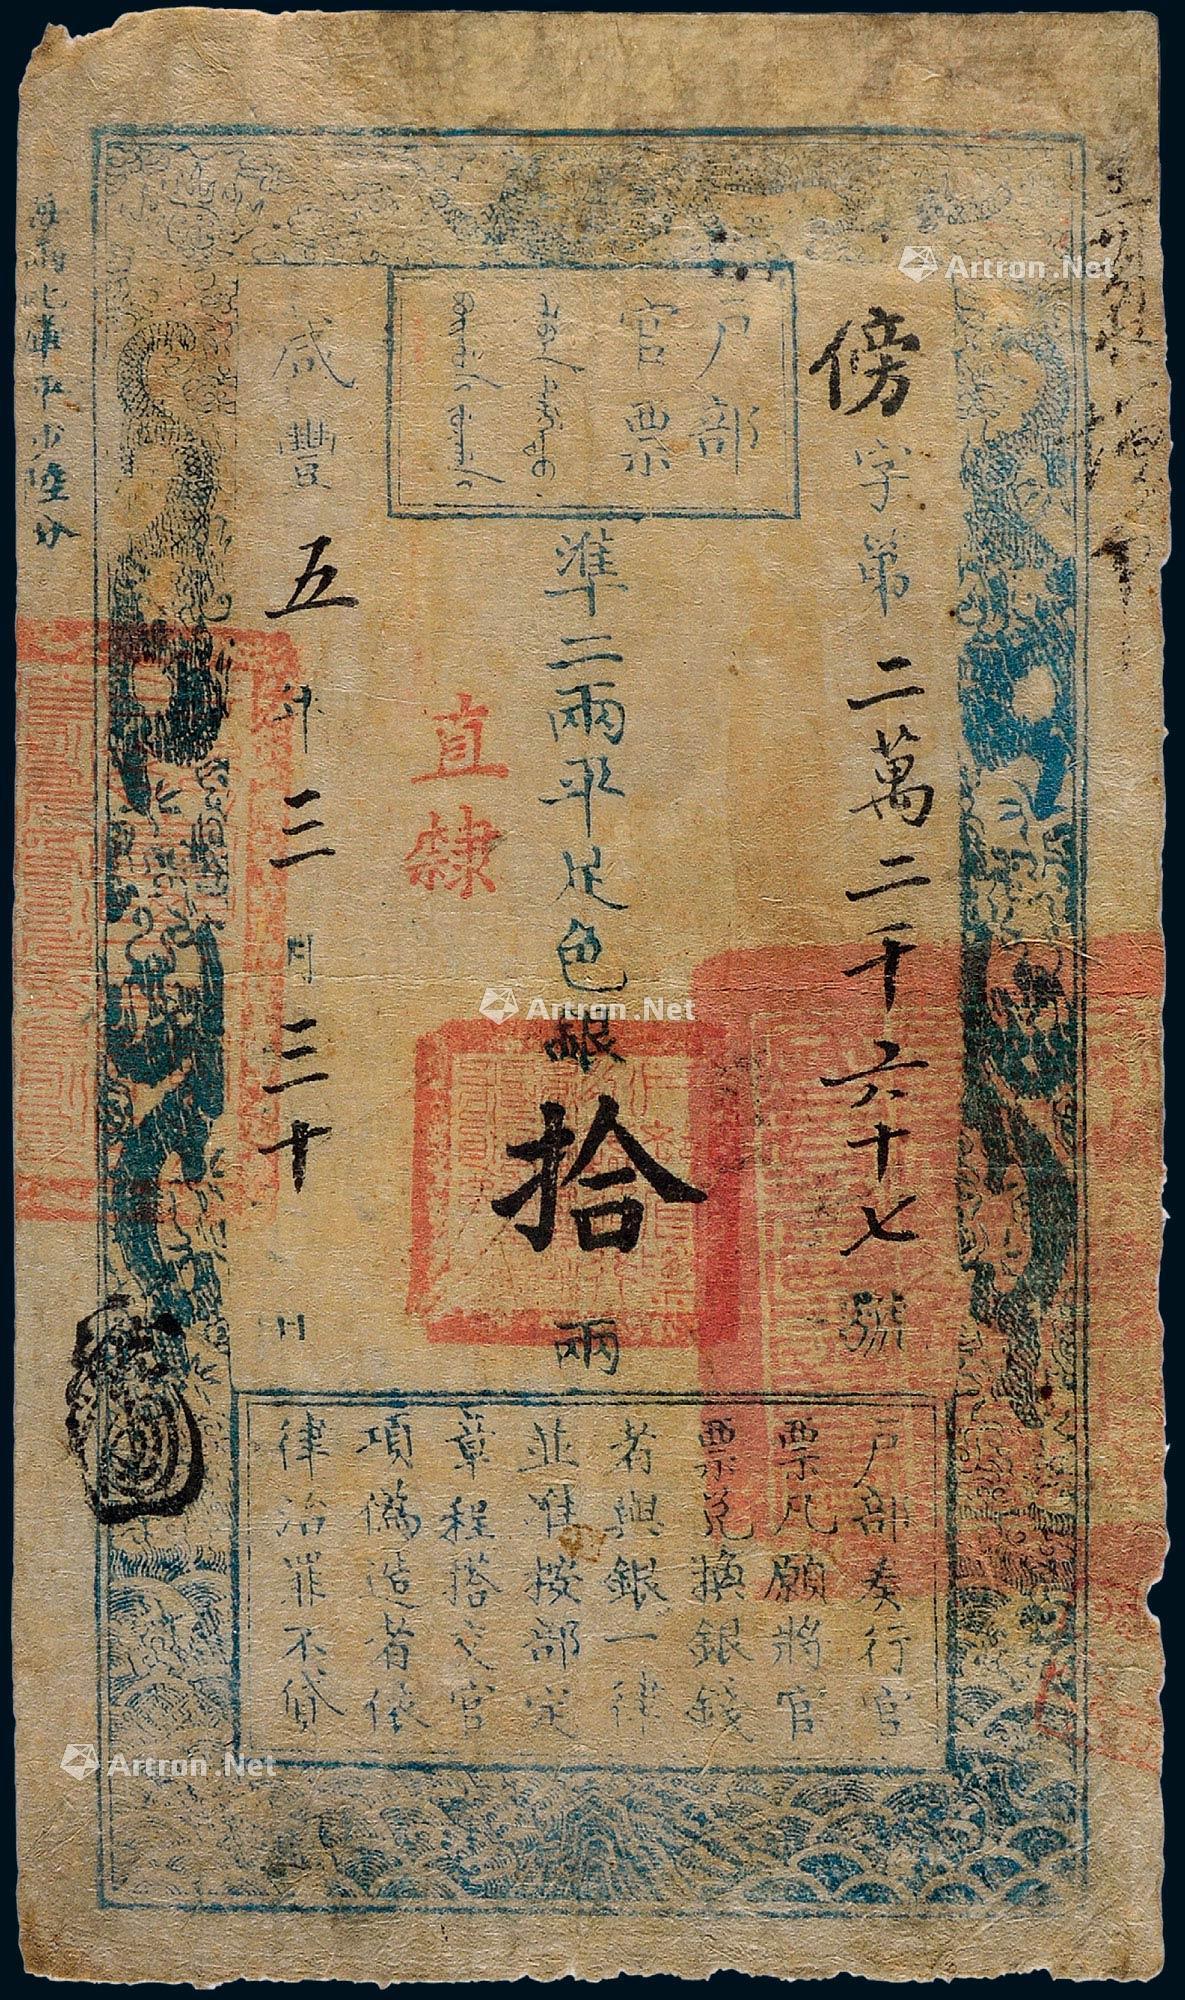 傍字第二萬二千六十七號
户部
官票
準二兩平足色銀拾兩
直隸
咸豐五年三月三十日
户部奏行官
票凡願將官
票兌換銀錢
者與銀一律
並准按部定
章程搭交官
項偽造者依
律治罪不貸
每兩比庫平少陸分
Artron.Net
Artron.Net
Artron.Net